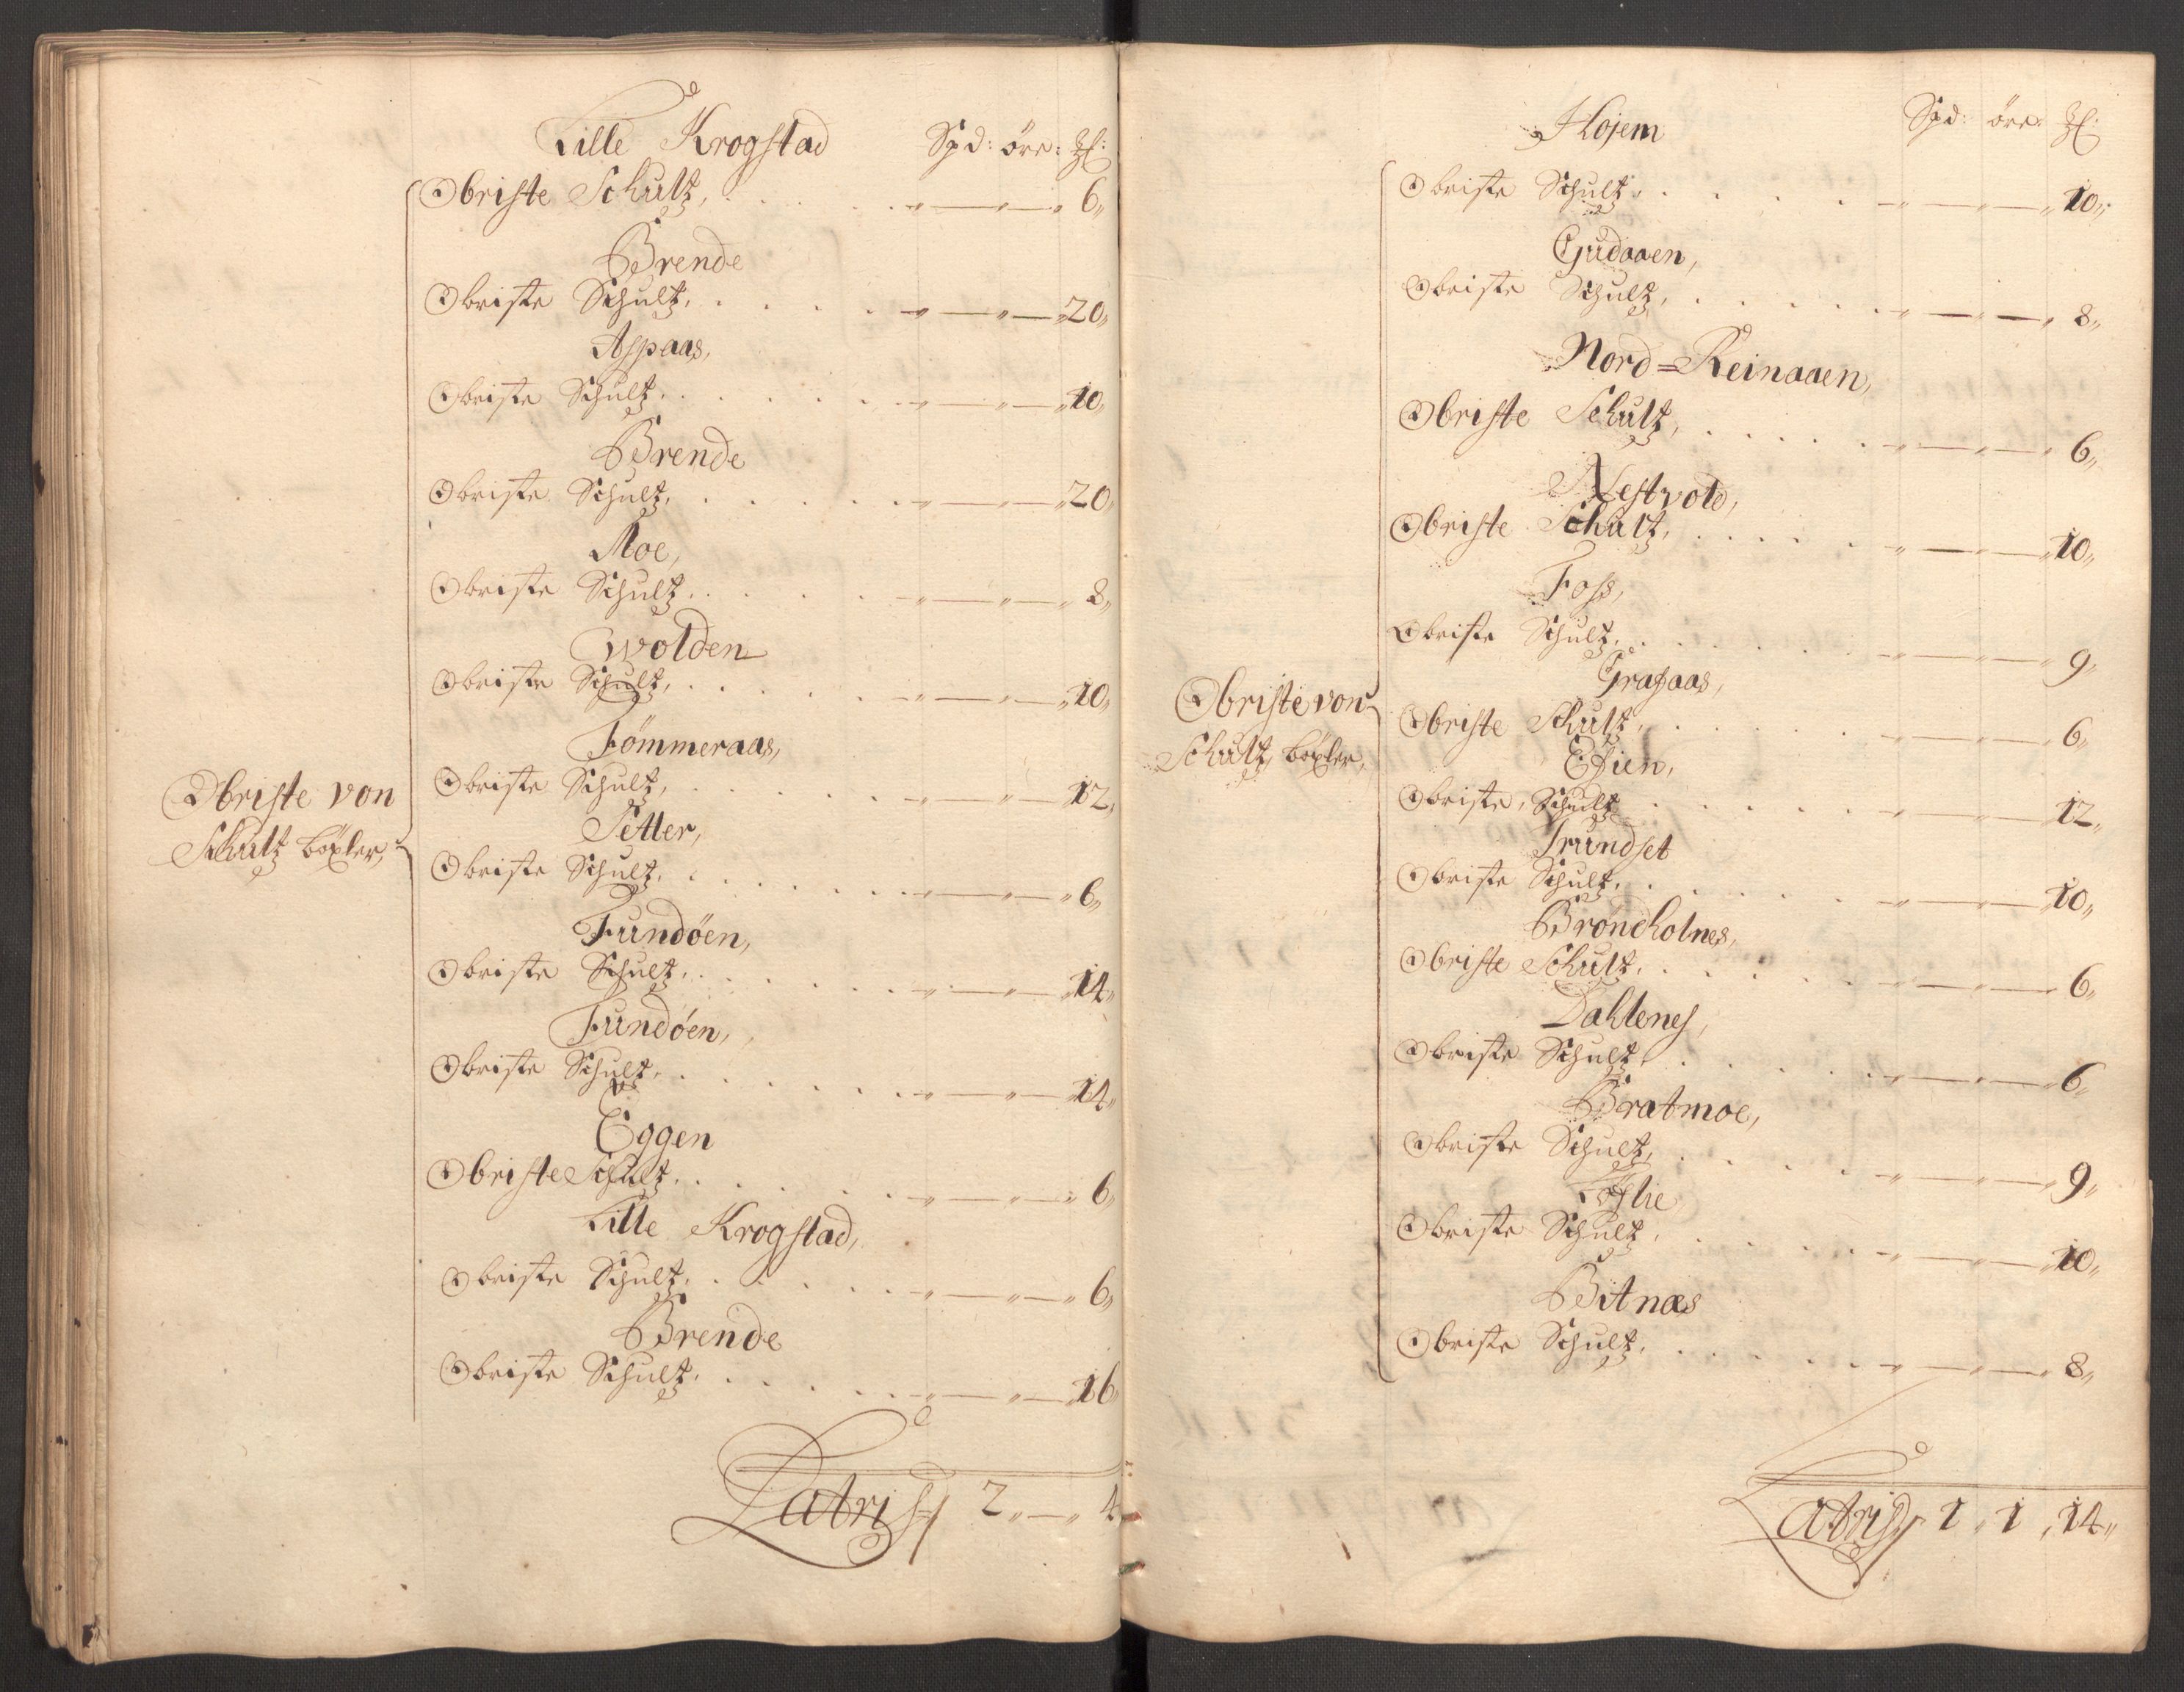 Lille Krogstad Spd: öre: 
Obriste Schultz, . . . . . „ — „ — „ 6„
Brende
Obriste Schultz, . . . . . „ — „ — „ 20„
Aspaas,
Obriste Schultz, . . . . . „ — „ — „ 10„
Brende
Obriste Schultz, . . . . . „ — „ — „ 20„
Moe,
Obriste Schultz, . . . . . „ — „ — „ 8„
Wolden
Obriste Schultz, . . . . . „ — „ — „ 10„
Tömmeraas,
Obriste Schultz, . . . . . „ — „ — „ 12„
Setter,
Obriste Schultz, . . . . . „ — „ — „ 6„
Tundöen,
Obriste Schultz, . . . . . „ — „ — „ 14„
Tundöen,
Obriste Schultz, . . . . . „ — „ — „ 14„
Eggen
Obriste Schultz, . . . . . „ — „ — „ 6„
Lille Krogstad,
Obriste Schultz, . . . . . „ — „ — „ 6„
Brende
Obriste Schultz, . . . . . „ — „ — „ 16„
Obriste von
Schultz böxler,
Latris 2 „ — „ 4
Hojem Spd: öre: 
Obriste Schultz, . . . . . „ — „ — „ 10„
Gudaaen,
Obriste Schultz, . . . . . „ — „ — „ 8„
Nord=Reinaaen,
Obriste Schultz, . . . . . „ — „ — „ 6„
Nestvold,
Obriste Schultz, . . . . . „ — „ — „ 10„
Foss,
Obriste Schultz, . . . . . „ — „ — „ 9„
Obriste Schultz, . . . . . „ — „ — „ 6„
Obriste Schultz . . . . . „ — „ — „ 12„
Trundset
Obriste Schultz, . . . . . „ — „ — „ 10„
Bröndholnes,
Obriste Schultz, . . . . . „ — „ — „ 6„
Dahlenes,
Obriste Schultz, . . . . . „ — „ — „ 6„
Bratmoe,
Obriste Schultz, . . . . . „ — „ — „ 9„
Obriste Schultz, . . . . . „ — „ — „ 10„
Bitnæs
Obriste Schultz, . . . . . „ — „ — „ 8„
Obriste von
Schultz, böxler,
Latris 1 „ 1 „ 14„